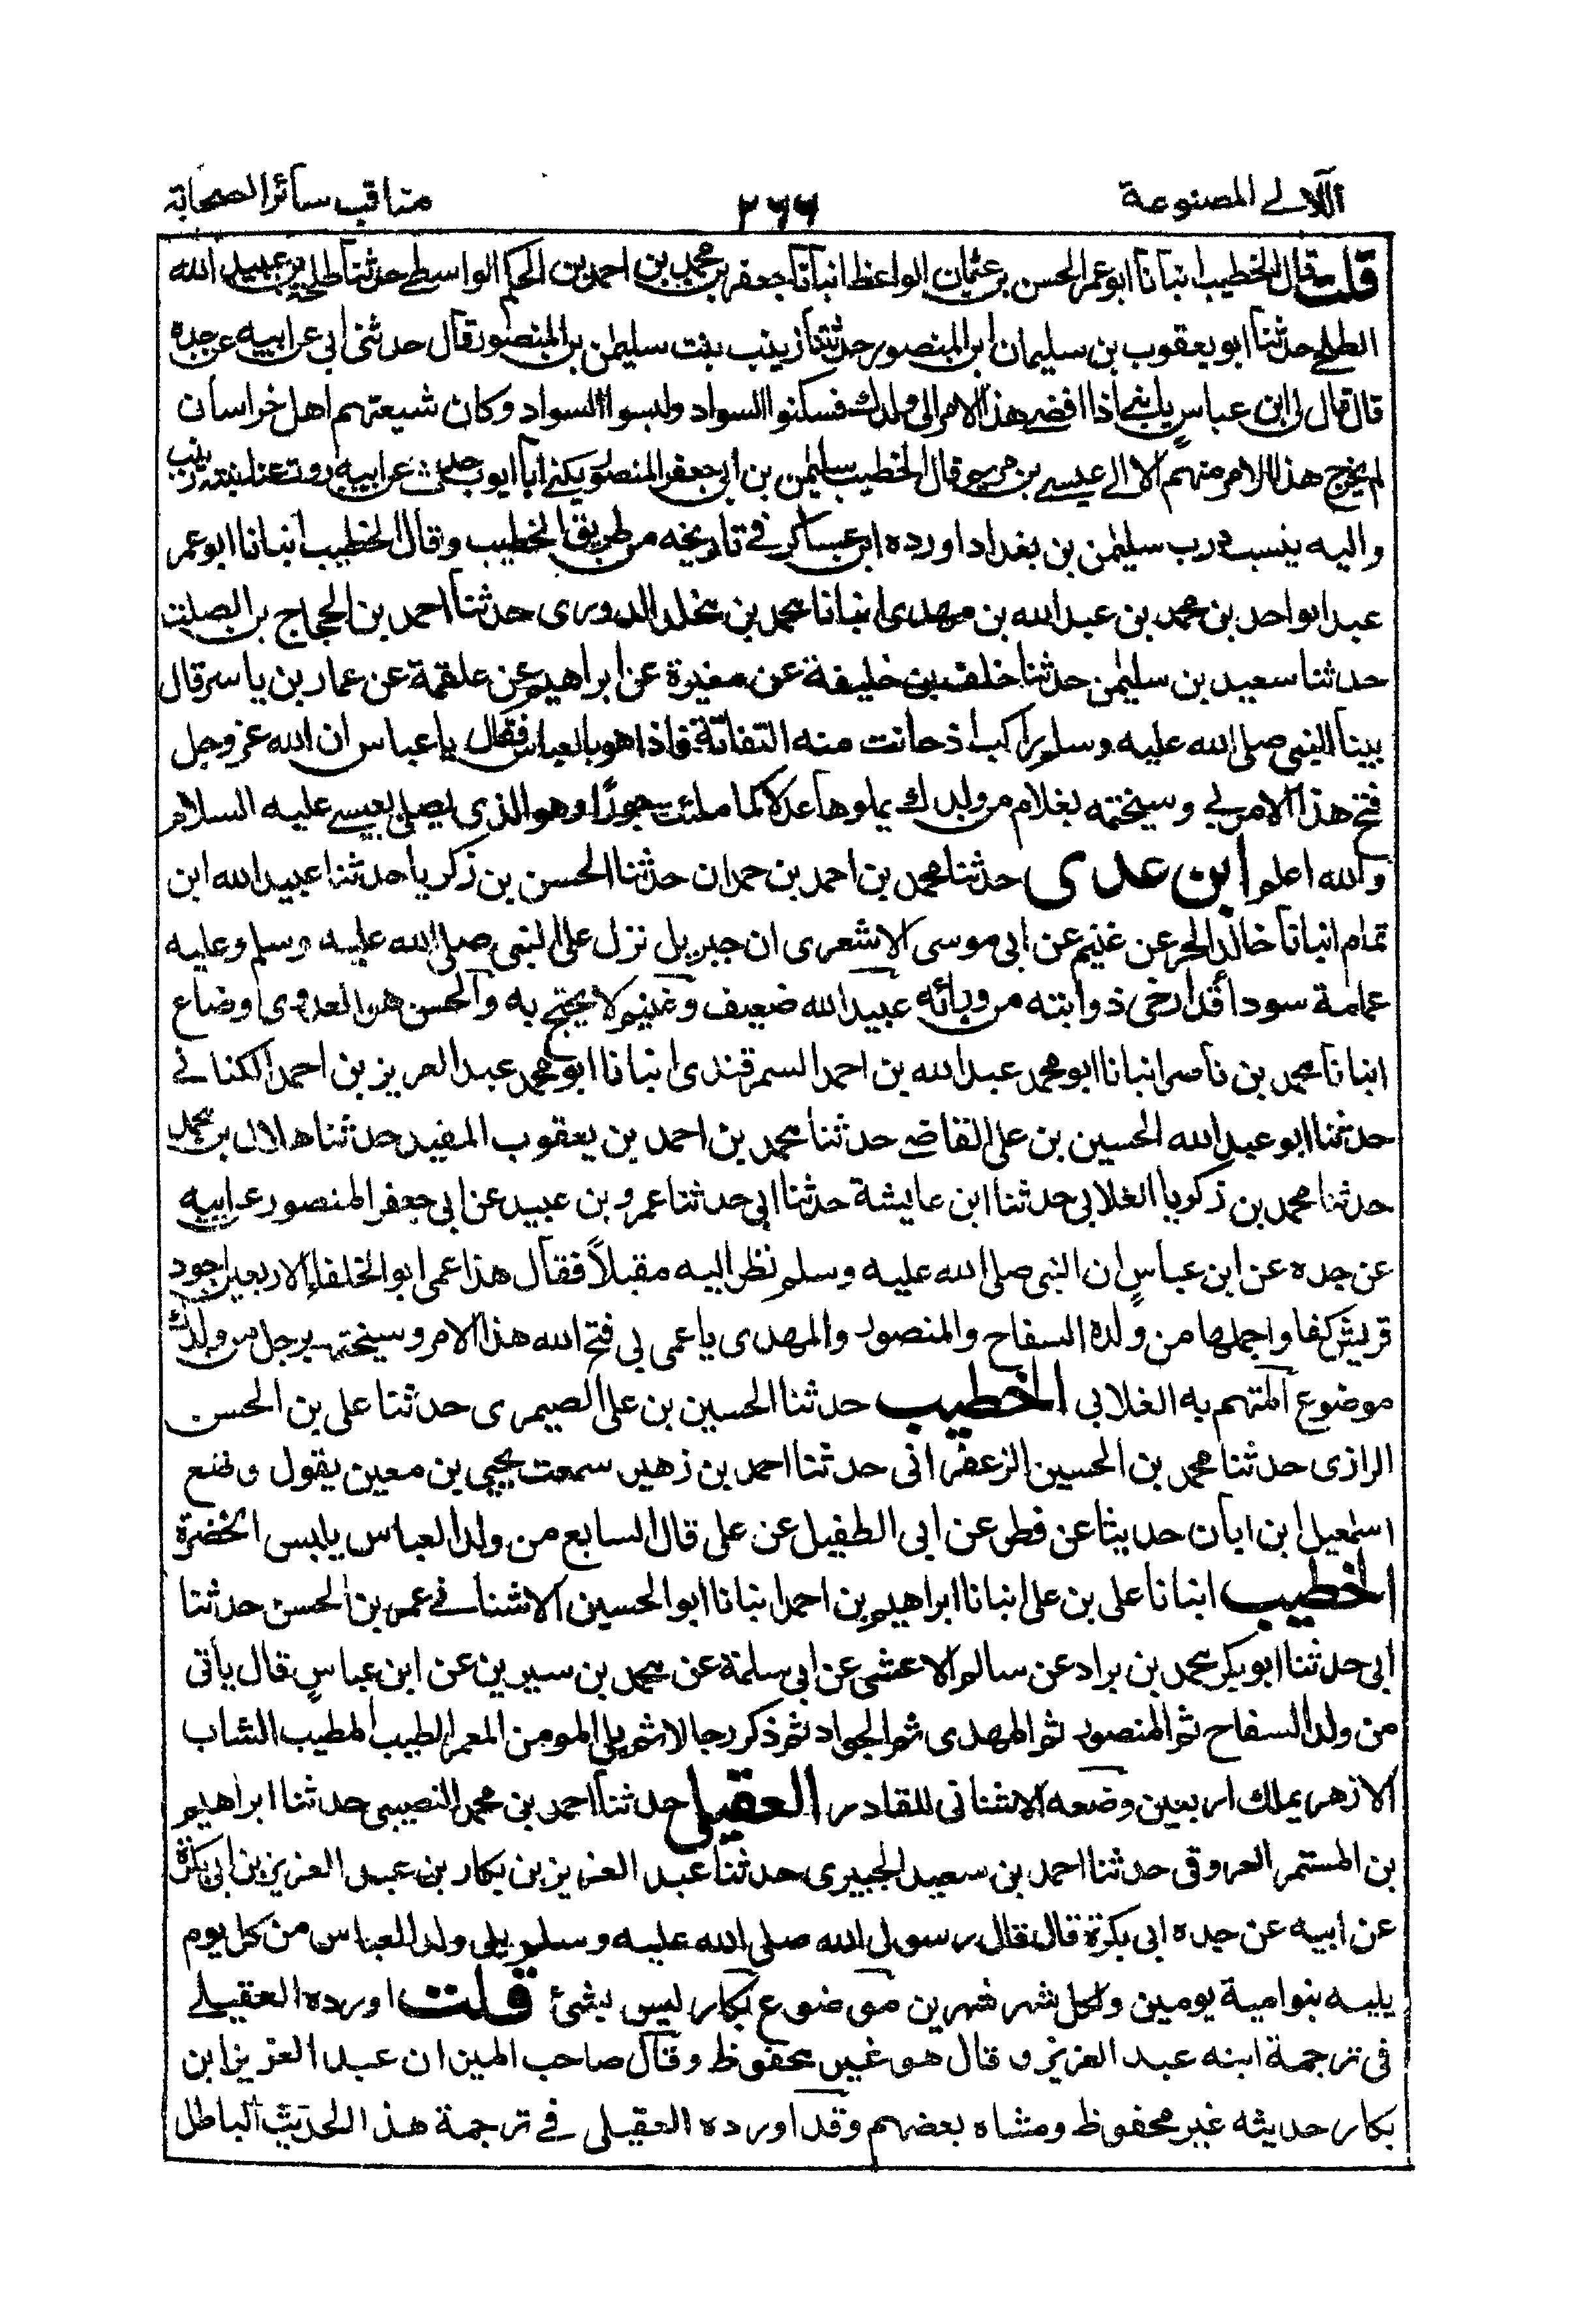 اللآلی المصنوعة ۲۶۶ مناقب سائر الصحابة
قلت قال الخطیب انبانا ابو عمر الحسن بن عثمان الواعظ انبانا جعفر بن محمد بن احمد بن الحکم الواسطے حدثنا طلحة بن عبید الله
الطلحے حدثنا ابو یعقوب بن سلیمان ابن المنصور حدثتنا زینب بنت سلیمٰن بن المنصور قال حدثنی ابی عن ابیه عن جده
قال قال لی ابن عباس یا بنے اذا افضے هذا الامر الی ولدک فسکنوا السواد ولبسوا السواد وکان شیعتهم اهل خراسان
لم یخرج هذا الامر منهم الا الے عیسے بن مریم قال الخطیب سلیمٰن بن ابی جعفر المنصور یکنے ابا ایوب حدث عن ابیه روت عنه ابنته زینب
والیه ینسب درب سلیمٰن بن بغداد اورده ابن عساکر فے تاریخه من طریق الخطیب وقال الخطیب انبانا ابو عمر
عبد الواحد بن محمد بن عبد الله بن مهدی انبانا محمد بن مخلد الدوری حدثنا احمد بن الحجاج بن الصلت
حدثنا سعید بن سلیمٰن حدثنا خلف بن خلیفة عن مغیرة عن ابراهیم عن علقمة عن عمار بن یاسر قال
بینا النبی صلی الله علیه وسلم راکب اذ حانت منه التفاتة فاذا هو بالعباس فقال یا عباس ان الله عز وجل
فتح هذا الامر بے وسیختمه بغلام من ولدک یملوها عدلا کما ملئت جورًا وهو الذی یصلی بعیسے علیه السلام
والله اعلم ابن عدی حدثنا محمد بن احمد بن حمدان حدثنا الحسن بن زکریا حدثنا عبید الله ابن
تمام انبانا خالد الحر عن غنیم عن ابی موسی الاشعری ان جبریل نزل علی النبی صلی الله علیه وسلم وعلیه
عمامة سودا قد ارخی ذوابته من ورائه عبید الله ضعیف وغنیم لا یحتج به والحسن هو العدوی وضاع
انبانا محمد بن ناصر انبانا ابو محمد عبد الله بن احمد السمرقندی انبانا ابو محمد عبد العزیز بن احمد الکنانے
حدثنا ابو عبد الله الحسین بن علی القاضے حدثنا محمد بن احمد بن یعقوب المفید حدثنا هلال بن محمد
حدثنا محمد بن زکویا الغلابی حدثنا ابن عایشة حدثنا ابی حدثنا عمرو بن عبید عن ابی جعفر المنصور عن ابیه
عن جده عن ابن عباس ان النبی صلی الله علیه وسلم نظر الیه مقبلاً فقال هذا عمی ابو الخلفاء الاربعین اجود
قریش کفا واجملها من ولده السفاح والمنصور والمهدی یا عمی بی فتح الله هذا الامر وسیختمه برجل من ولدک
موضوع المتهم به الغلابی الخطیب حدثنا الحسین بن علی الصیمری حدثنا علی بن الحسن
الرازی حدثنا محمد بن الحسین الزعفرانی حدثنا احمد بن زهیر سمعت یحیی بن معین یقول وضع
اسمٰعیل ابن ابان حدیثا عن فطر عن ابی الطفیل عن علی قال السابع من ولد العباس یلبس الخضرة
الخطیب انبانا علی بن علی انبانا ابراهیم بن احمد انبانا ابو الحسین الاشنانے عمر بن الحسن حدثنا
ابی حدثنا ابو بکر محمد بن براد عن سالم الاعمشی عن ابی سلمة عن محمد بن سیرین عن ابن عباس قال یأتی
من ولد السفاح ثم المنصور ثم المهدی ثم الجواد ثم ذکر رجالا ثم یلی المومن المعمر الطیب المطیب الشاب
الازهر یملک اربعین وضعه الاشنانی للقادر العقیلی حدثنا احمد بن محمد النصیبی حدثنا ابراهیم
بن المستمر العروقی حدثنا احمد بن سعید الجبیری حدثنا عبد العزیز بن بکار بن عبد العزیز بن ابی بکرة
عن ابیه عن جده ابی بکرة قال قال رسول الله صلی الله علیه وسلم یلی ولد العباس من کل یوم
یلیه بنو امیة یومین ولکل شهر شهرین موضوع بکار لیس بشئ قلت اورده العقیلے
فی ترجمة ابنه عبد العزیز و قال هو غیر محفوظ وقال صاحب المیزان عبد العزیز ابن
بکار حدیثه غیر محفوظ ومشاه بعضهم وقد اورده العقیلی فے ترجمة هذا الحدیث الباطل